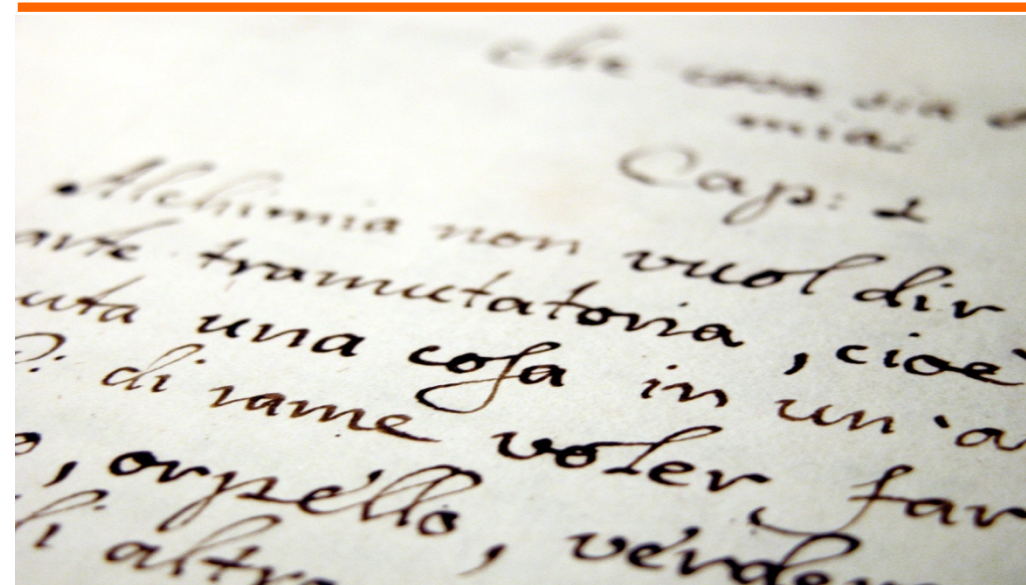 che cosa sia
mia:
Cap: 1
Alchimia non vuol dir
arte tramutatoria, cioè
uta una cosa in un'a
di rame voler far
, orpello, verde
altro